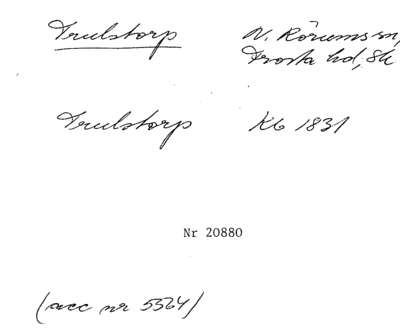 Trulstorp N. Rörums sn,
Frosta hd, Sk
Trulstorp Kb 1831
Nr 20880
(acc nr 5564)